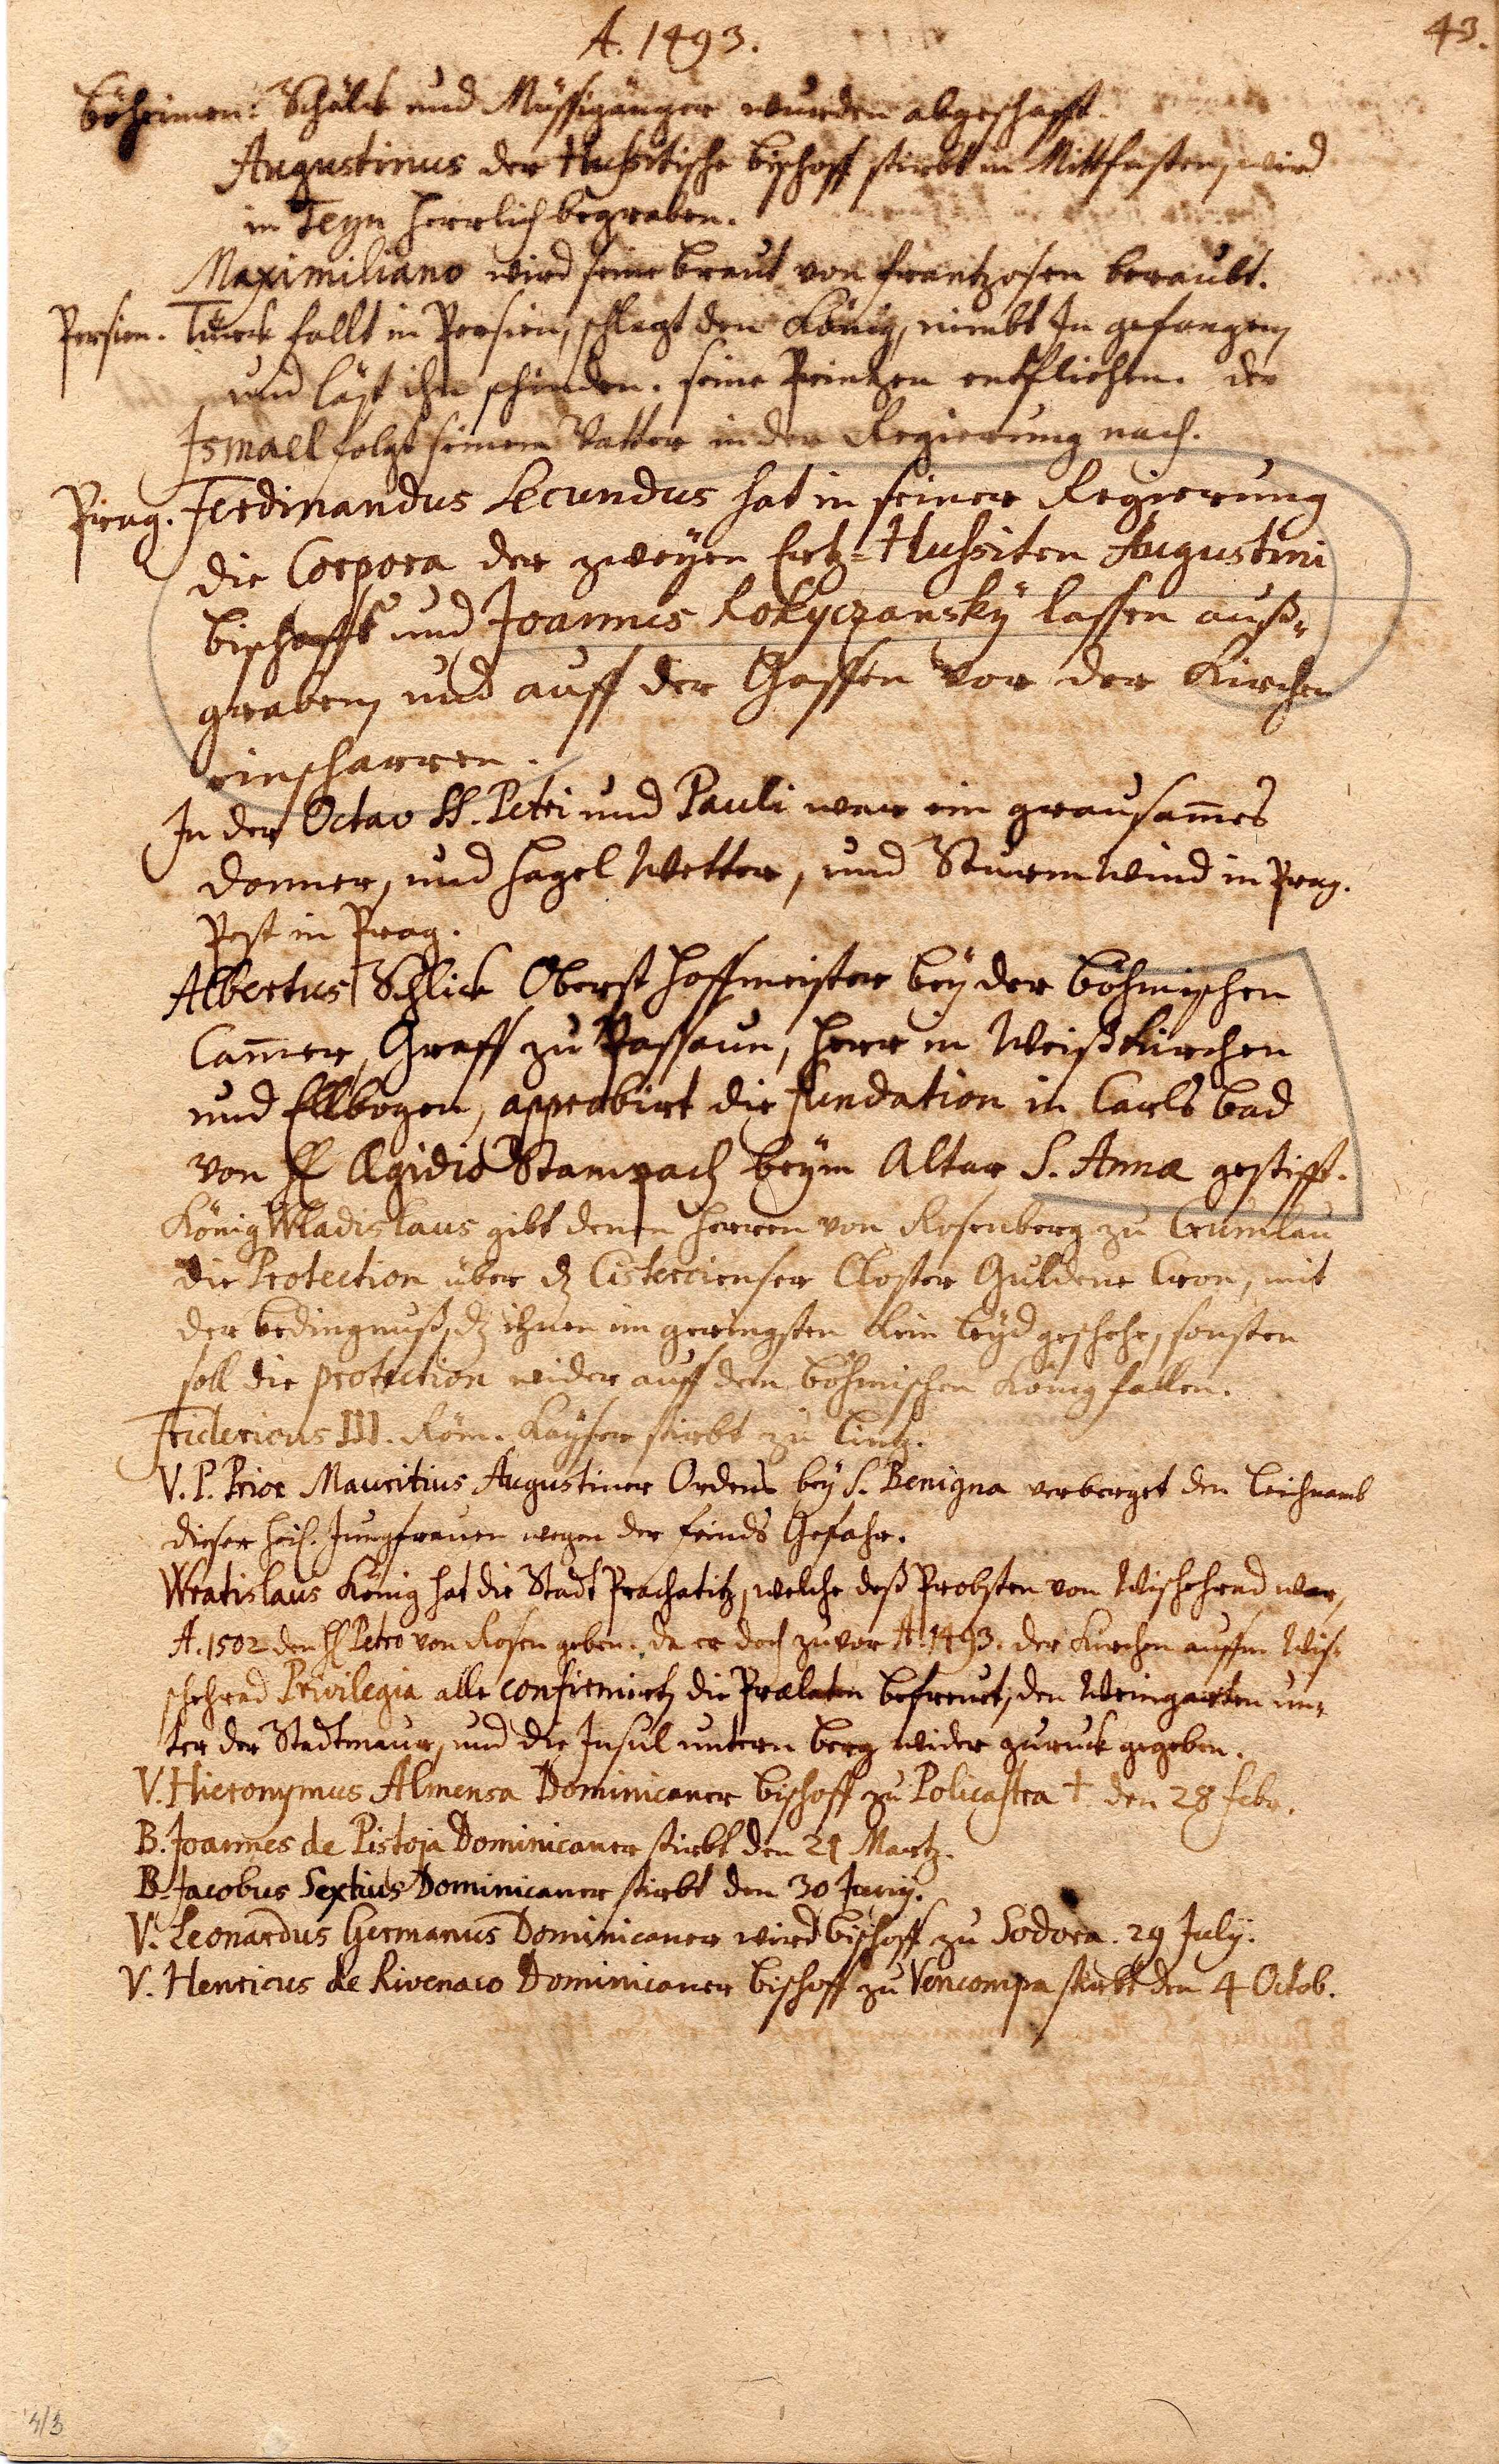 A. 1493.
43.
Böheimen: Schälck und Müssigänger wurden abgeschafft.
Augustinus der Hussitische Bischoff stirbt in Mittfasten, wird
in Teyn herrlich begraben.
Maximiliano wird seine braut von Frantzosen beraubt.
Persien. Türck fallt in Persien, schlagt den König, nimbt In gefangen,
und läst ihn schinden. seine Printzen entfliehen. der
Ismael folgt seinem Vatter in der Regierung nach.
Prag. Ferdinandus Secundus hat in seiner Regierung
die Corpora der zweyen Ertz-Hussiten Augustini
bischoffs und Joannis Rokyczansky lassen auß-
graben, und auff der Gassen vor der Kirchen
einscharren.
In der Octav SS. Petri und Pauli war ein grausam̄es
donner, und hagel Wetter, und Sturmwind in Prag.
Pest in Prag.
Albertus Schlick Oberst hoffmeister bey der böhmischen
Cam̄er, Graff zu Passaun, herr in Weißkirchen
und Ellbogen, approbirt die fundation in Carls bad
von H Ægidio Stampach beym Altar S. Annæ gestifft.
König Wladislaus gibt denen herren von Rosenberg zu Crumlau
die Protection über dz Cistercienser Closter Guldene Cron, mit
der bedingnuß, dz ihnen im geringsten kein leyd geschehe, sonsten
soll die protection wider auff den böhmischen König fallen.
Fridericus III. Röm. Kayser stirbt zu Lintz.
V. P. Prior Mauritius Augustiner Ordens bey S. Benigna verberget den leichnamb
dieser heil. Jungfrauen wegen der feinds Gefahr.
Wratislaus König hat die Stadt Prachatitz, welche deß Probsten von Wischehrad war,
A. 1502 den H Petro von Rosen geben. da er doch zuvor A. 1493. der Kirchen auffm Wis-
schehrad Privilegia alle confirmirt, die Prælaten befreüet, den Weingarten un-
ter der Stadtmaur, und die Insul untern berg wider zuruck gegeben.
V. Hieronymus Almensa Dominicaner bischoff zu Policastra † den 28 febr.
B. Joannes de Pistoja Dominicaner stirbt den 21 Martz.
B. Jacobus Sextius Dominicaner stirbt den 30 Junij.
V. Leonardus Germanus Dominicaner wird bischoff zu Sodora. 29 Julij.
V. Henricus de Rivenaco Dominicaner bischoff zu Vencompa stirbt den 4 Octob.